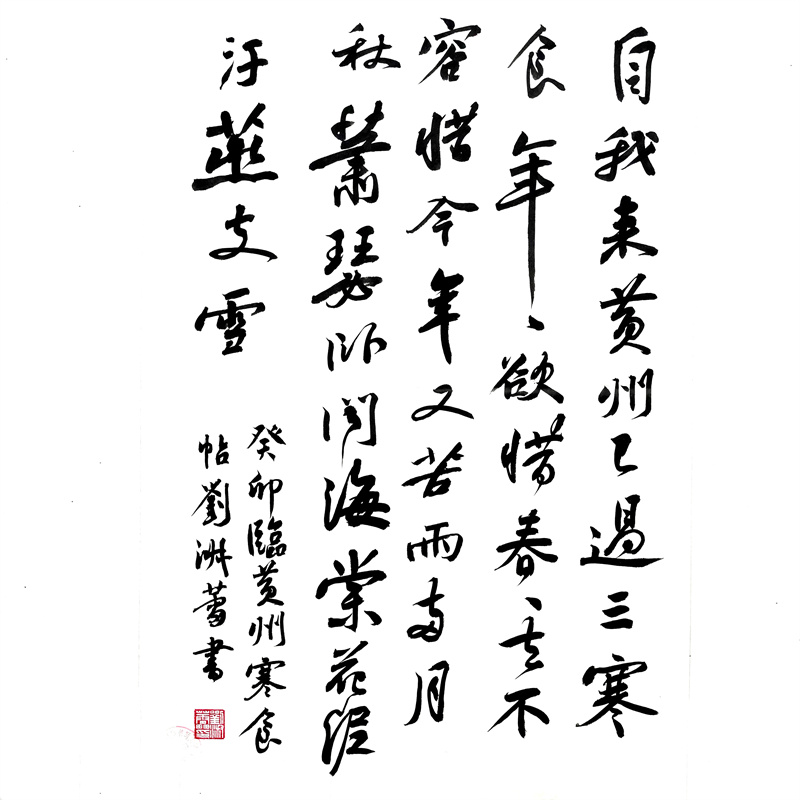 自我来黄州已過三寒
食年、欲惜春、去不
容惜今年又苦雨兩月
秋蕭瑟卧聞海棠花泥
汙燕支雪
癸卯臨黄州寒食
帖劉蕾書